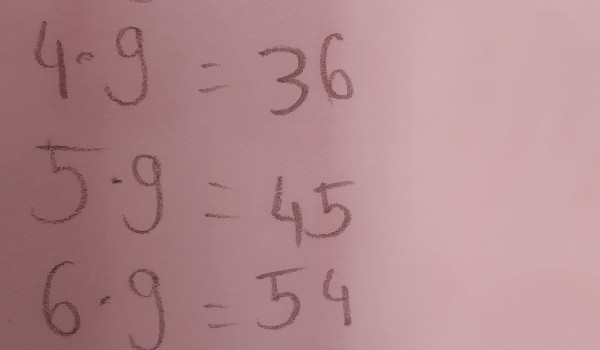 4·9 = 36
5·9 = 45
6·9 = 54